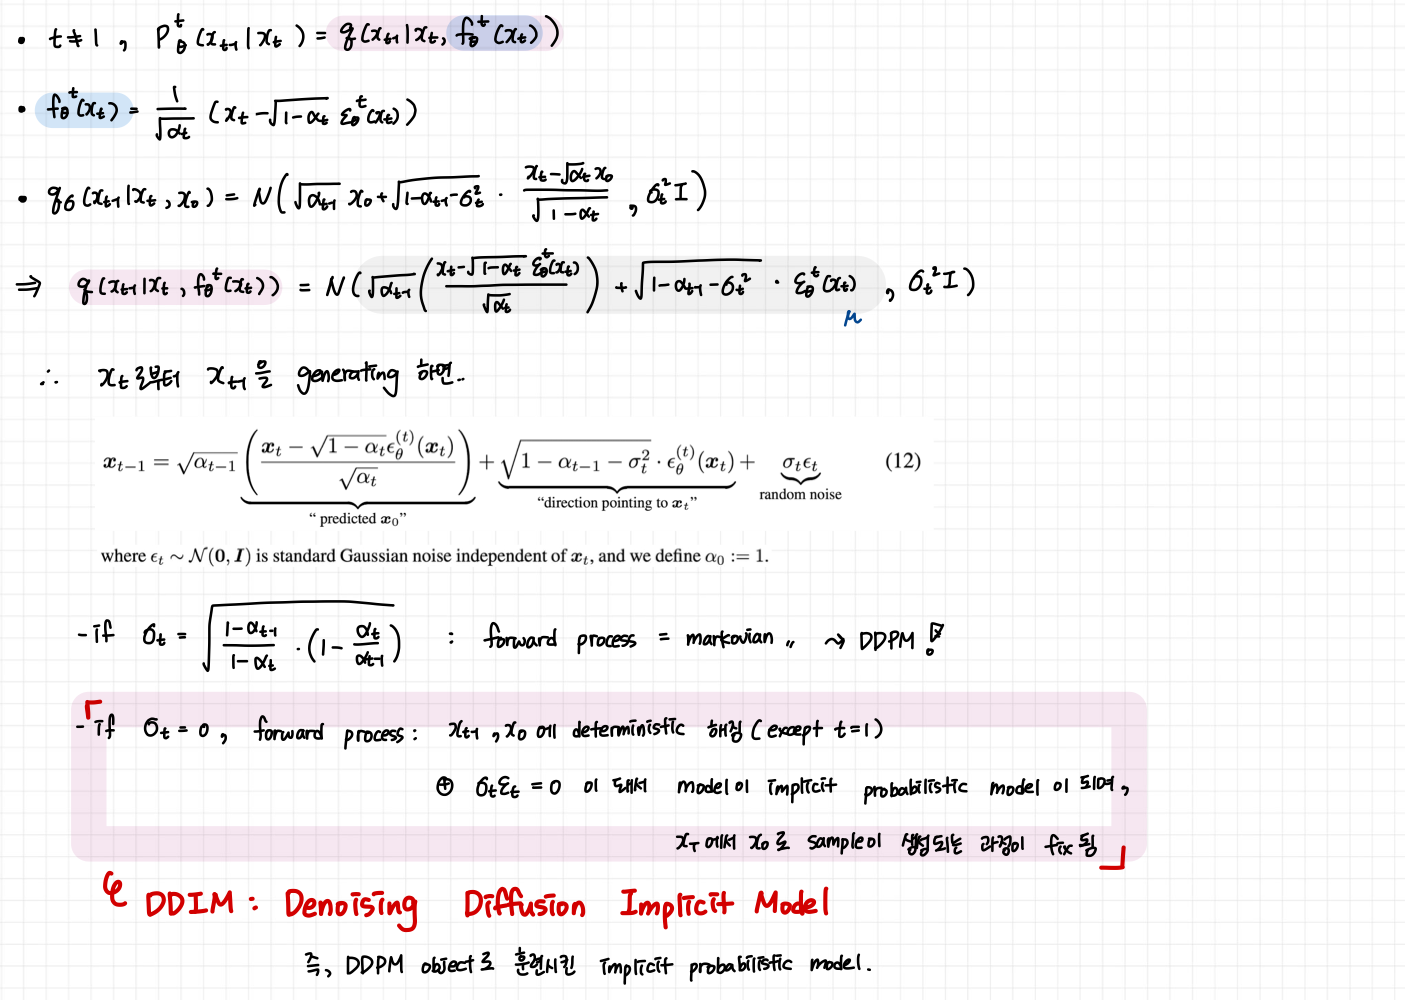 • t≠1 , P_θ^t (x_{t-1} | x_t) = q(x_{t-1} | x_t, f_θ^t (x_t))
• f_θ^t (x_t) = 1/√α_t (x_t - √(1-α_t) ε_θ^t (x_t))
• q_σ (x_{t-1} | x_t , x_0) = N(√α_{t-1} x_0 + √(1-α_{t-1}-σ_t^2) · (x_t - √α_t x_0)/√(1-α_t) , σ_t^2 I)
⇒ q(x_{t-1} | x_t , f_θ^t (x_t)) = N(√α_{t-1} ((x_t - √(1-α_t) ε_θ^t (x_t))/√α_t) + √(1-α_{t-1}-σ_t^2) · ε_θ^t (x_t) , σ_t^2 I)
μ
∴ x_t로부터 x_{t-1}을 generating 하면..
x_{t-1} = √α_{t-1} ((x_t - √(1-α_t) ε_θ^{(t)}(x_t))/√α_t) + √(1-α_{t-1}-σ_t^2) · ε_θ^{(t)}(x_t) + σ_t ε_t (12)
“ predicted x_0” “direction pointing to x_t” random noise
where ε_t ∼ N(0, I) is standard Gaussian noise independent of x_t, and we define α_0 := 1.
- if σ_t = √((1-α_{t-1})/(1-α_t) · (1 - α_t/α_{t-1})) : forward process = markovian 〃 ⇝ DDPM !
「- if σ_t = 0 , forward process : x_{t-1} , x_0 에 deterministic 해짐 (except t=1)
⊕ σ_t ε_t = 0 이 돼서 model이 implicit probabilistic model 이 되며,
x_T 에서 x_0 로 sample이 생성되는 과정이 fix 됨 」
DDIM : Denoising Diffusion Implicit Model
즉, DDPM object로 훈련시킨 implicit probabilistic model.